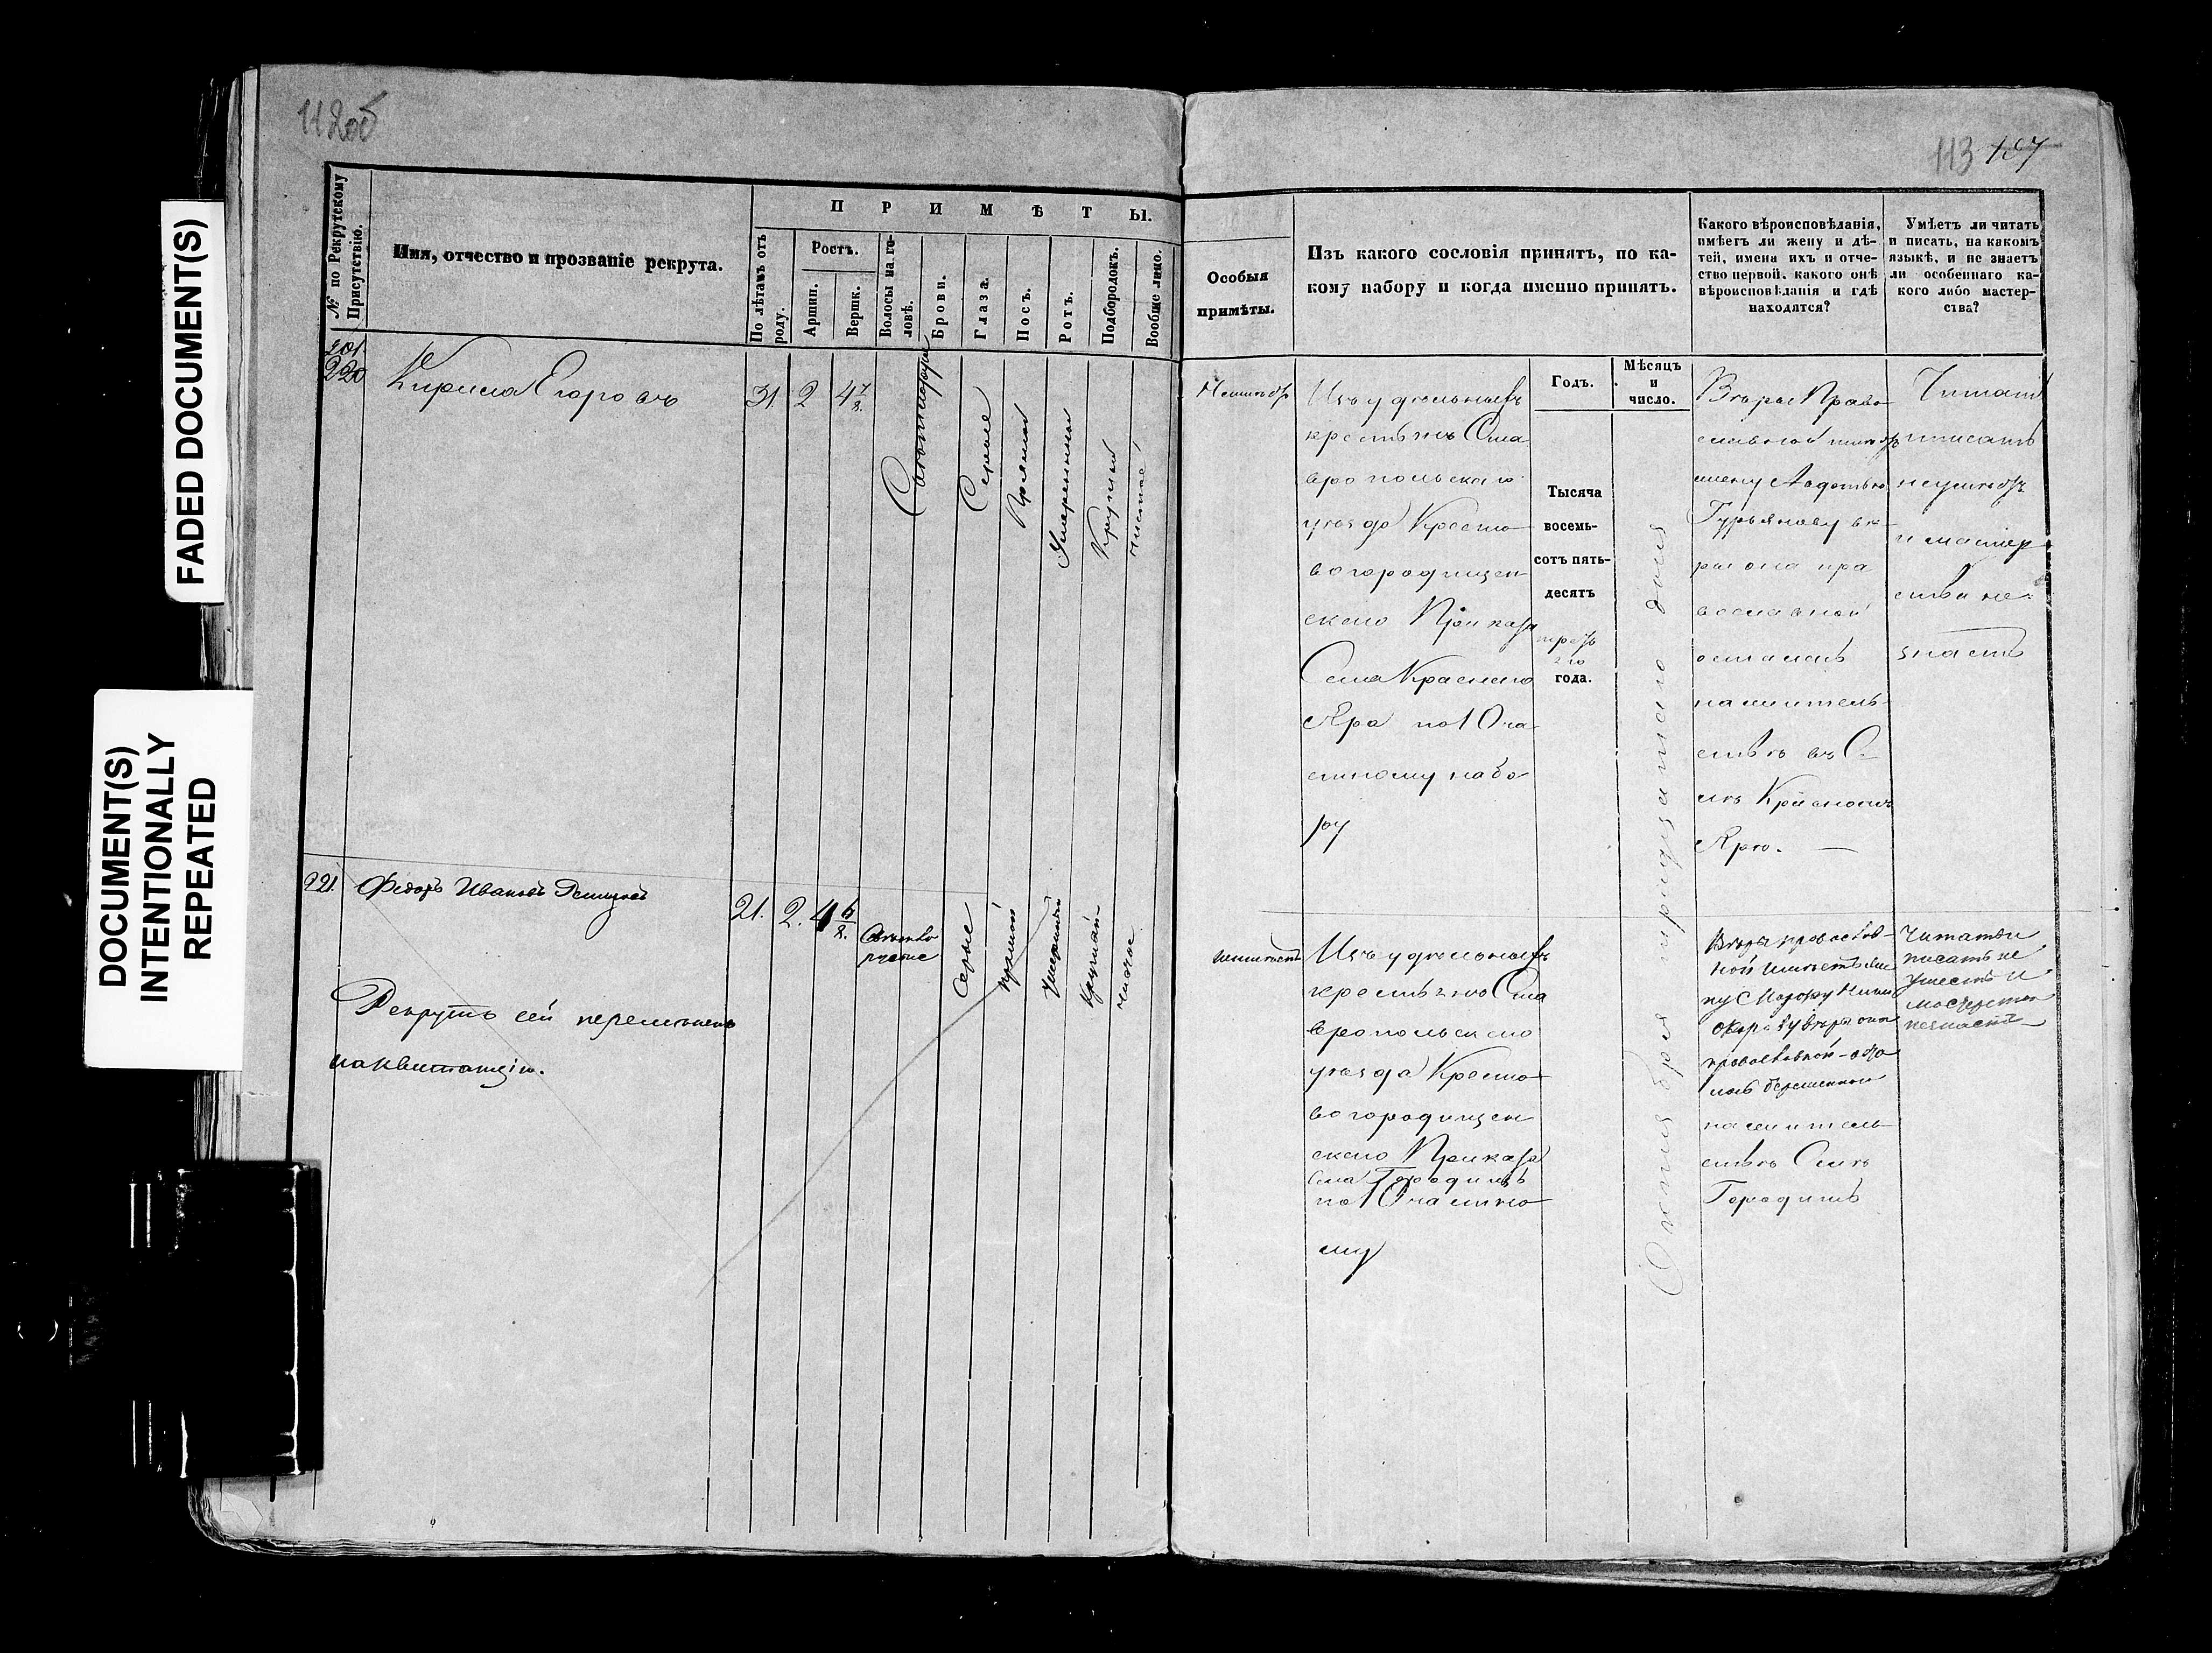 112об
113 157
FADED DOCUMENT(S)
DOCUMENT(S)
INTENTIONALLY
REPEATED
№ по Рекрутскому
Присутствію.
Имя, отчество и прозваніе рекрута.
ПРИМѢТЫ.
По лѣтамъ отъ
роду.
Ростъ.
Аршин.
Вершк.
Волосы на го-
ловѣ.
Брови.
Глаза.
Носъ.
Ротъ.
Подбородокъ.
Вообще лицо.
Особыя
примѣты.
Изъ какого сословія принятъ, по ка-
кому набору и когда именно принятъ.
Какого вѣроисповѣданія,
имѣетъ ли жену и дѣ-
тей, имена ихъ и отче-
ство первой, какого онѣ
вѣроисповѣданія и гдѣ
находятся?
Умѣетъ ли читать
и писать, на какомъ
языкѣ, и не знаетъ
ли особеннаго ка-
кого либо мастер-
ства?
Годъ.
Мѣсяцъ
и
число.
201.
220
Кирила Егоровъ
31.
2
4 7/8.
Светлорусые
Серые
Прямой
Умеренный
Круглый
чистое
Неимѣетъ
Изъ удѣльныхъ
крестьянъ Ста
вропольскаго
уѣзда Кресто
вогородищен
скаго Приказа
Села Краснаго
Яра по 10 ча
стному набо
ру
Тысяча
восемь-
сотъ пять-
десятъ
третья
го
года.
Октября тридцатаго дня
Вѣры Право
славной имѣетъ
жену Авдотью
Гурьянову вѣ
ры она пра
вославной
осталась
на житель
ствѣ въ С
елѣ Красномъ
Яру.
Читать
и писать
неумѣетъ
и мастер
ства не
знаетъ
221.
Федоръ Ивановъ
21.
2.
4 6/8.
Светло
русые
Серые
прямой
Умеренный
круглый
чистое
неимѣетъ
Изъ удѣльныхъ
крестьянъ Ста
вропольскаго
уѣзда Кресто
вогородищен
скаго Приказа
Села Городищъ
по 10 частно
му
Вѣры православ
ной имѣетъ же
ну
вѣры она
православной оста
лась беременной
на житель
ствѣ Селѣ
Городищѣ
Читать и
писать не
умеетъ и
мастерства
незнаетъ
Рекрутъ сей перемененъ
на квитанцію.